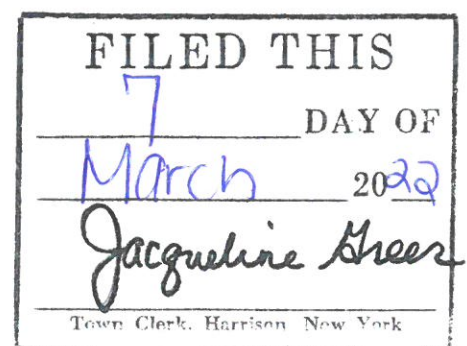 FILED THIS
7 DAY OF
March 2022
Jacqueline Greer
Town Clerk, Harrison New York